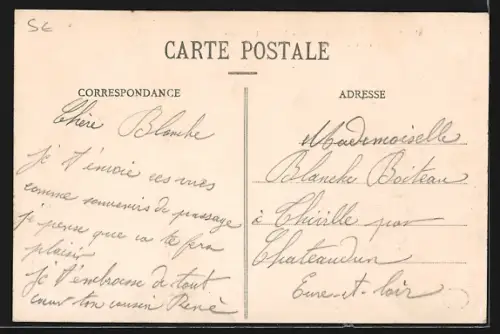 56
CARTE POSTALE
CORRESPONDANCE
Chère Blanche
Je t'envoie ces vues
comme souvenirs de passage
je pense que ca te fera
plaisir
Je t'embrasse de tout
cœur ton cousin René
ADRESSE
Mademoiselle
Blanche Boiteau
à Thiville par
Chateaudun
Eure-et-Loir